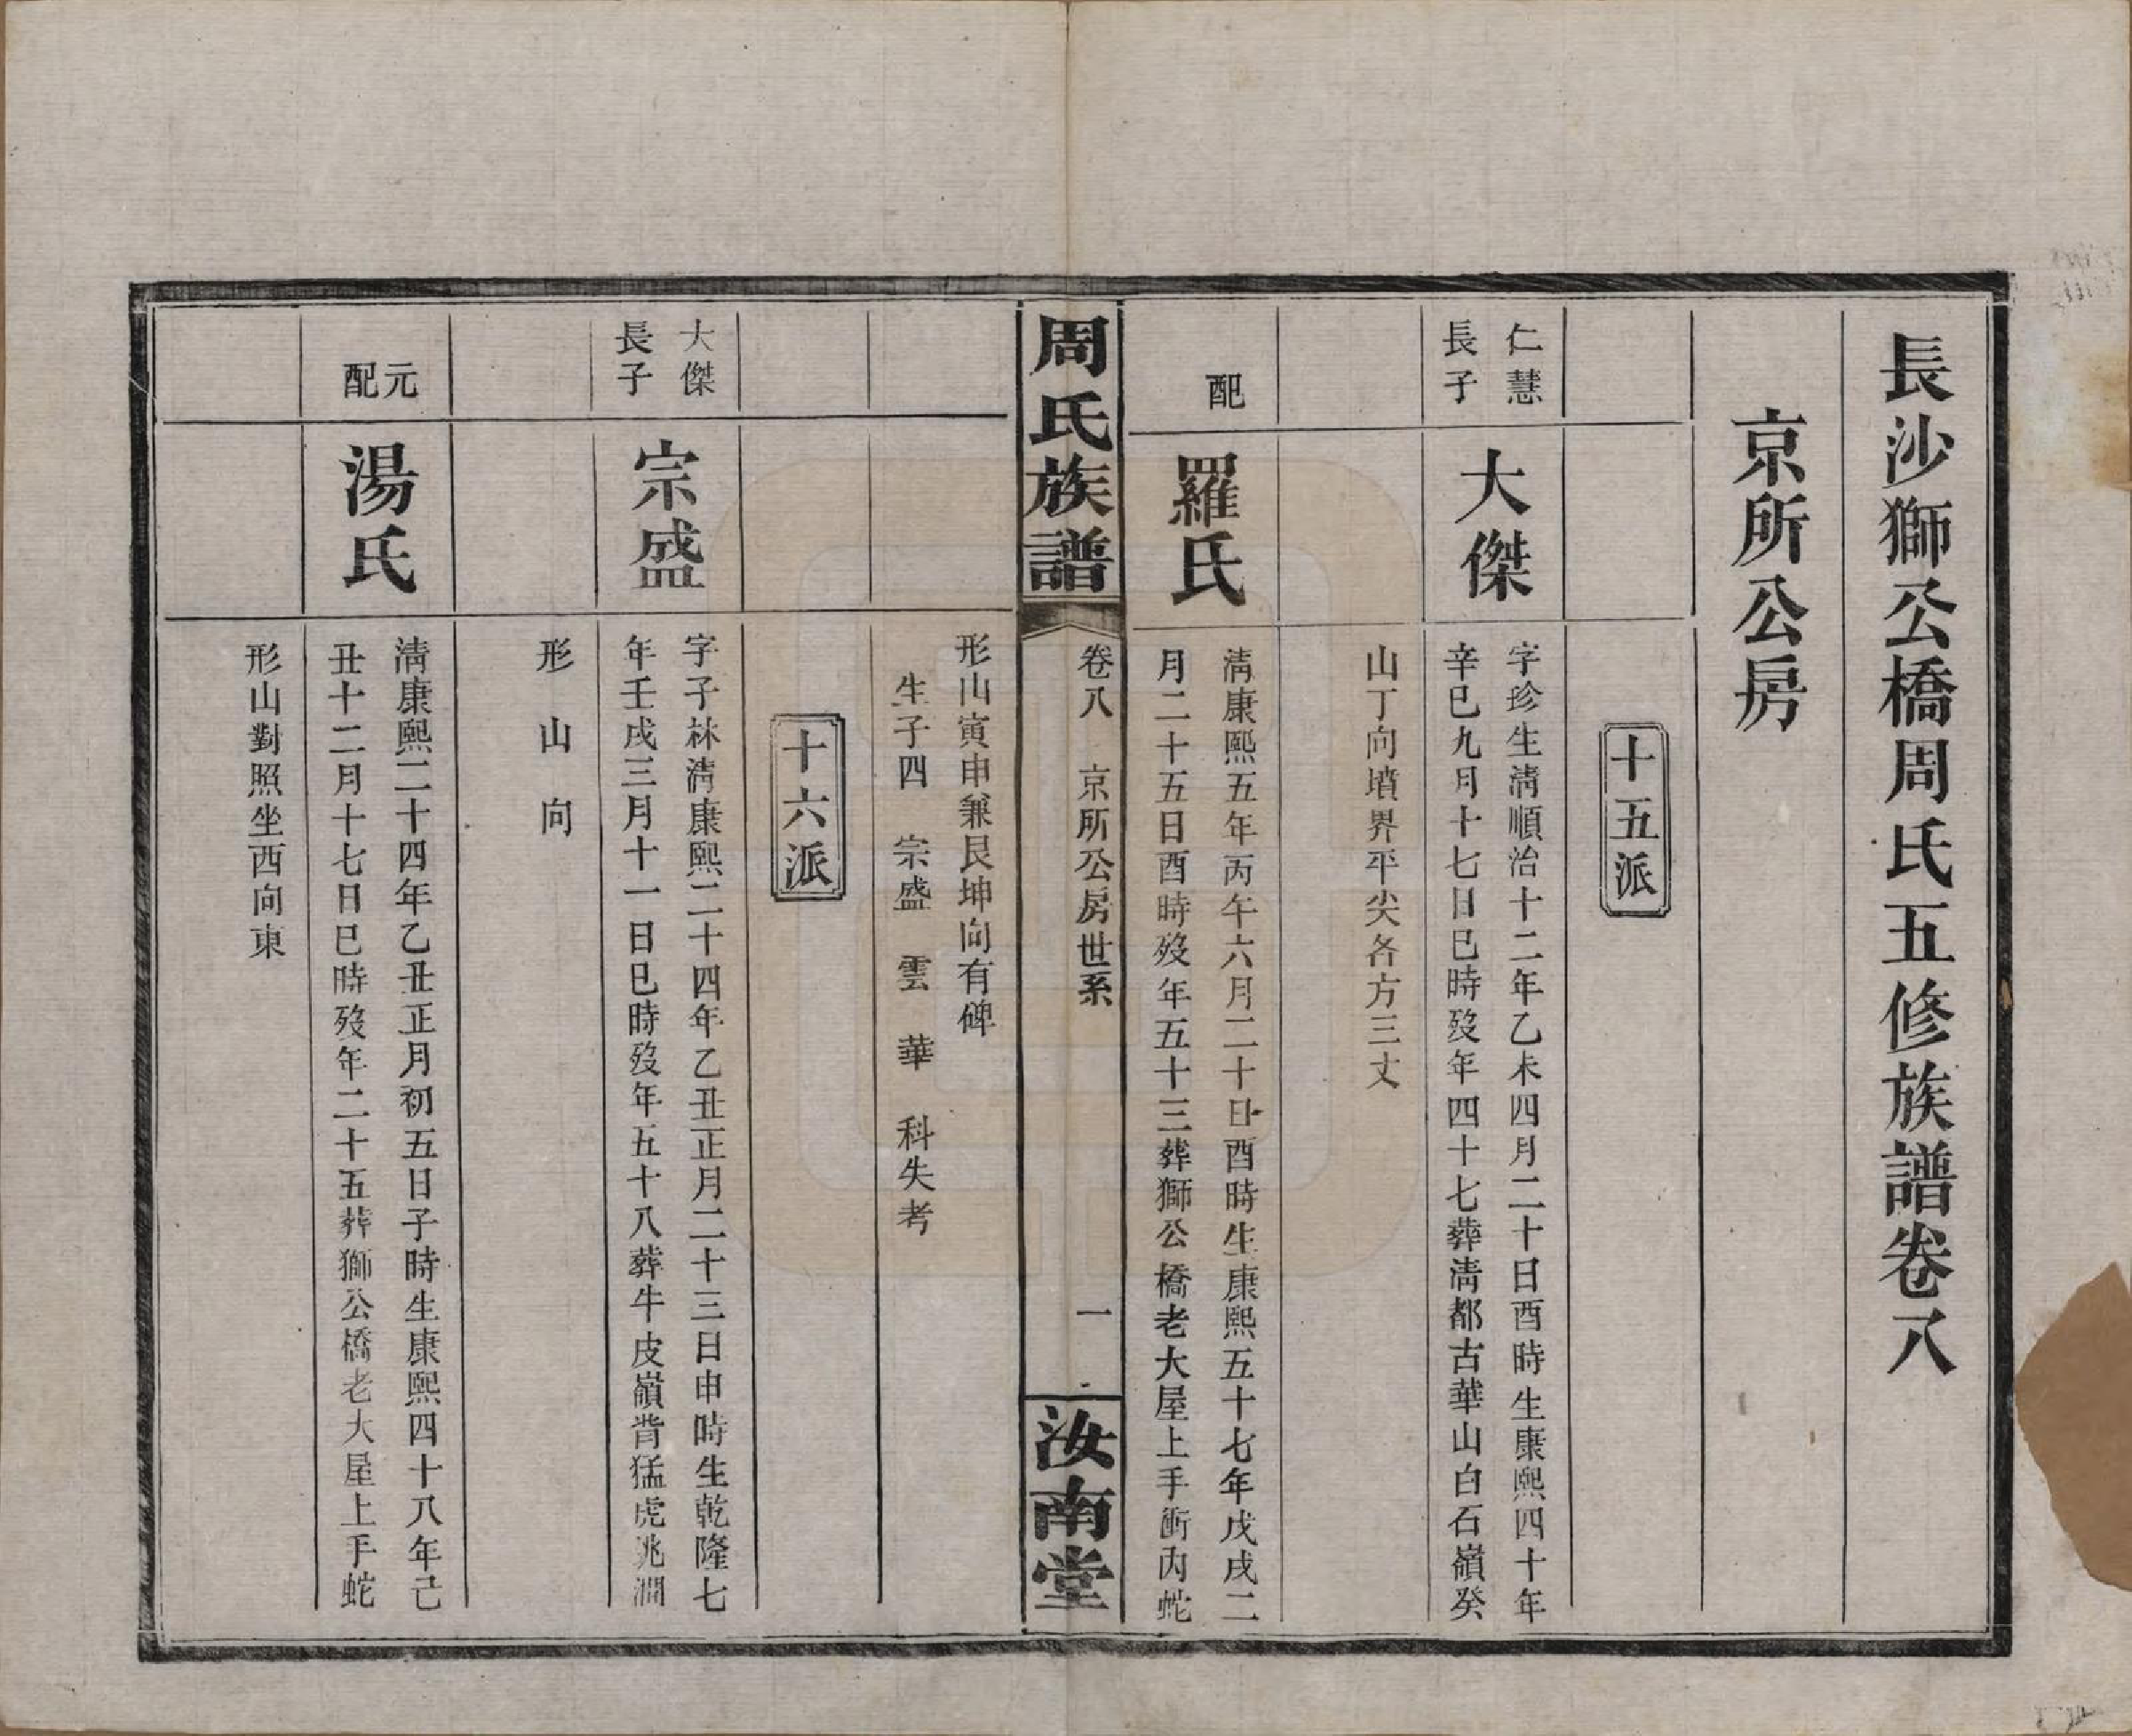 長沙獅公橋周氏五修族譜卷八
京所公房
十五派
仁慧
長子
大傑
字珍生淸順治十二年乙未四月二十日酉時生康熙四十年
辛巳九月十七日巳時歿年四十七葬淸都古華山白石嶺癸
山丁向墳界平尖各方三丈
配
羅氏
淸康熙五年丙午六月二十日酉時生康熙五十七年戊戌二
月二十五日酉時歿年五十三葬獅公橋老大屋上手衝內蛇
周氏族譜
卷八 京所公房世系
一
汝南堂
形山寅申兼艮坤向有碑
生子四 宗盛 雲 華 科失考
十六派
大傑
長子
宗盛
字子林淸康熙二十四年乙丑正月二十三日申時生乾隆七
年壬戌三月十一日巳時歿年五十八葬牛皮嶺背猛虎跳澗
形山向
元
配
湯氏
淸康熙二十四年乙丑正月初五日子時生康熙四十八年己
丑十二月十七日巳時歿年二十五葬獅公橋老大屋上手蛇
形山對照坐西向東